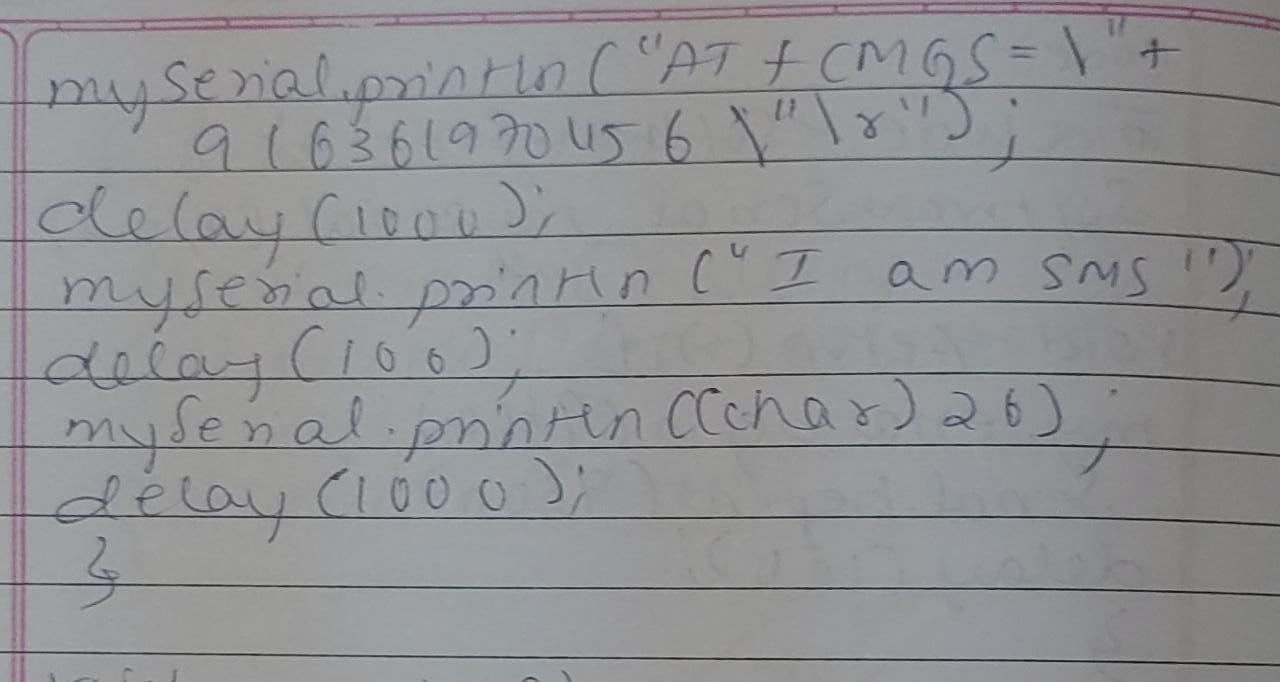 mySerial.println ("AT + CMGS = \" +
916361970456 \" \r");
delay (1000);
mySerial.println (" I am SMS ");
delay (100);
mySerial.println ((char) 26);
delay (1000);
}